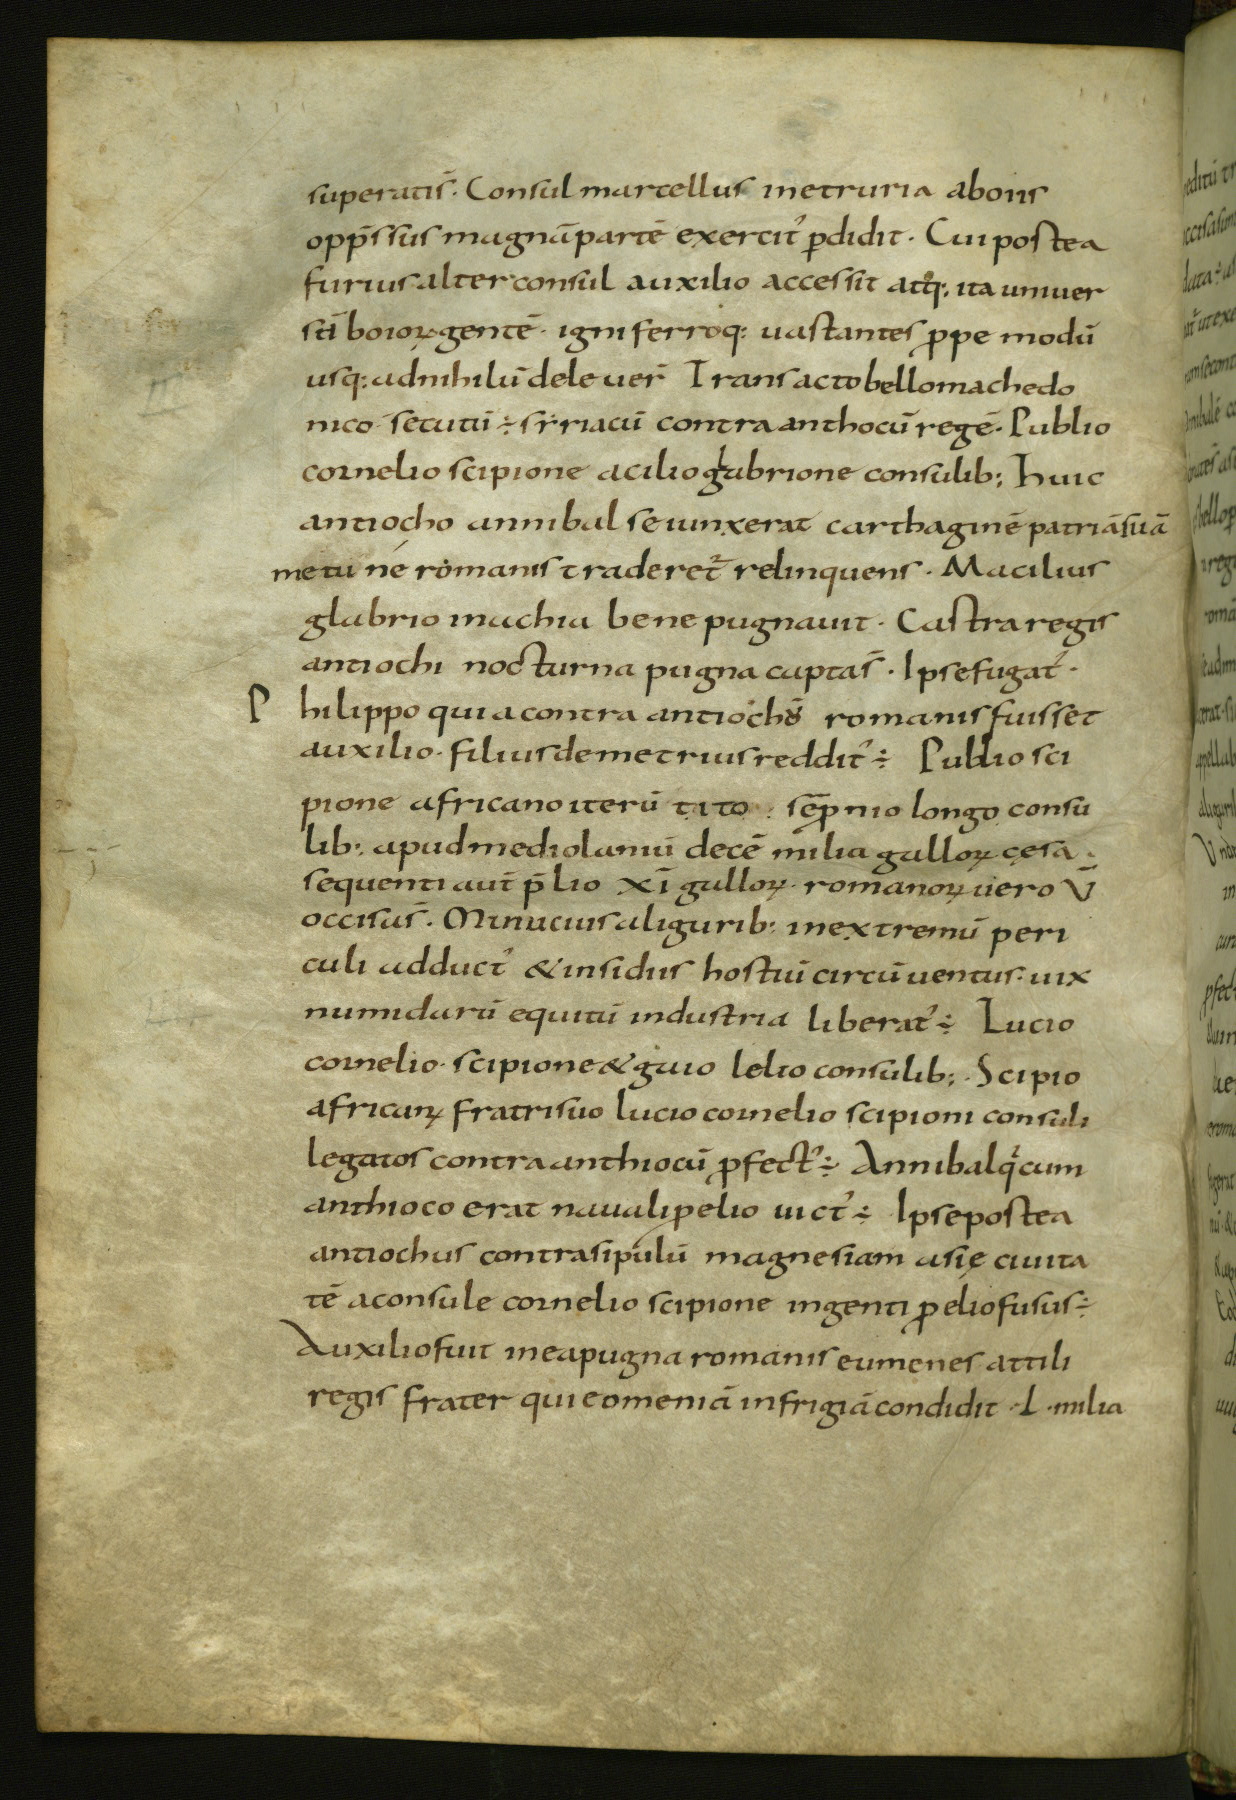 superatis̄. Consul martellus in etruria aboiis
opp̄ssus magnā partē exercit᾽ p̄didit. Cui postea
furius alter consul auxilio accessit atq;, ita univer
sā boioꝝ gentē. igni ferroq: vastantes ꝓpe modū
usq: ad nihilū delever̄ Transacto bello machedo
nico secutū ÷ sẏriacū contra anthocū regē. Publio
cornelio scipione acilio glabrione consulib; huic
antiocho annibal se iunxerat carthaginē patriā suā
metu ne romanis traderet᾽ relinquens. M acilius
glabrio in achia bene pugnavit. Castra regis
antiochi nocturna pugna captas̄. Ipse fugat᾽.
P hilippo quia contra antiochū romanis fuisset
auxilio. filius demetrius reddit᾽ ÷ Publio sci
pione africano iterū tito. sēꝓnio longo consu
lib: apud mediolaniū decē milia galloꝝ cęsa.
sequenti aut̄ p̄lio XI galloꝝ. romanoꝝ vero V̄
occisas̄. Minucius a ligurib: in extremū peri
culi adduct᾽ & insidiis hostiū circūventus. vix
numidarū equitū industria liberat᾽ ÷ Lucio
cornelio. scipione & gaio lelio consulib;. Scipio
africanꝝ fratri suo lucio cornelio scipioni consuli
legatos contra anthiocū ꝓfect᾽ ÷ Annibal q̇ cum
anthioco erat navali pelio vict᾽ ÷ Ipse postea
antiochus contra sipulū magnesiam asię civita
tē a consule cornelio scipione ingenti ꝓelio fusus ÷
Auxilio fuit in ea pugna romanis eumenes attili
regis frater qui eomeniā in frigiā condidit. L. milia